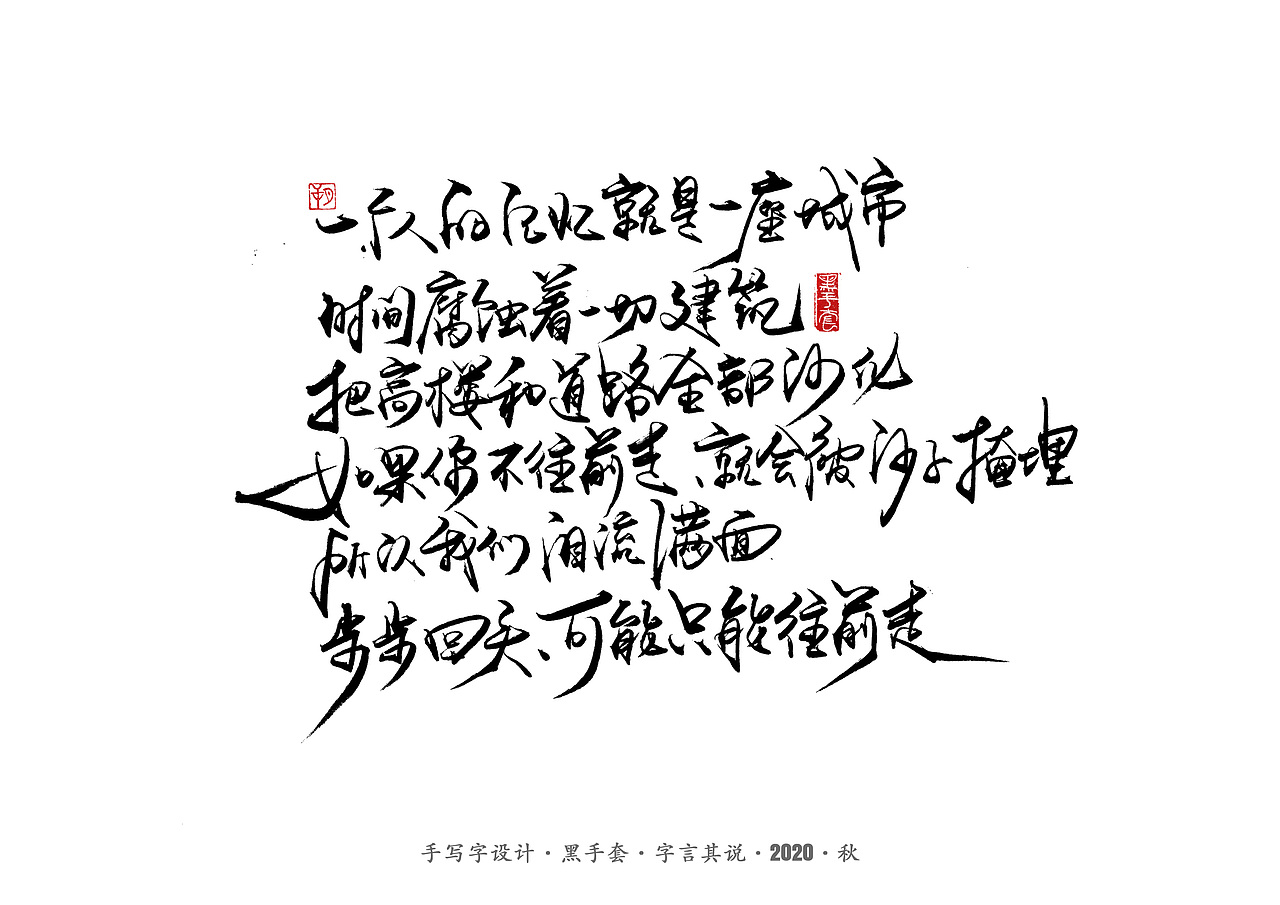 一个人的记忆就是一座城市
时间腐蚀着一切建筑
黑手套
把高楼和道路全部沙化
如果你不往前走、就会被沙子掩埋
所以我们泪流满面
步步回头、可能只能往前走
手写字设计·黑手套·字言其说·2020·秋